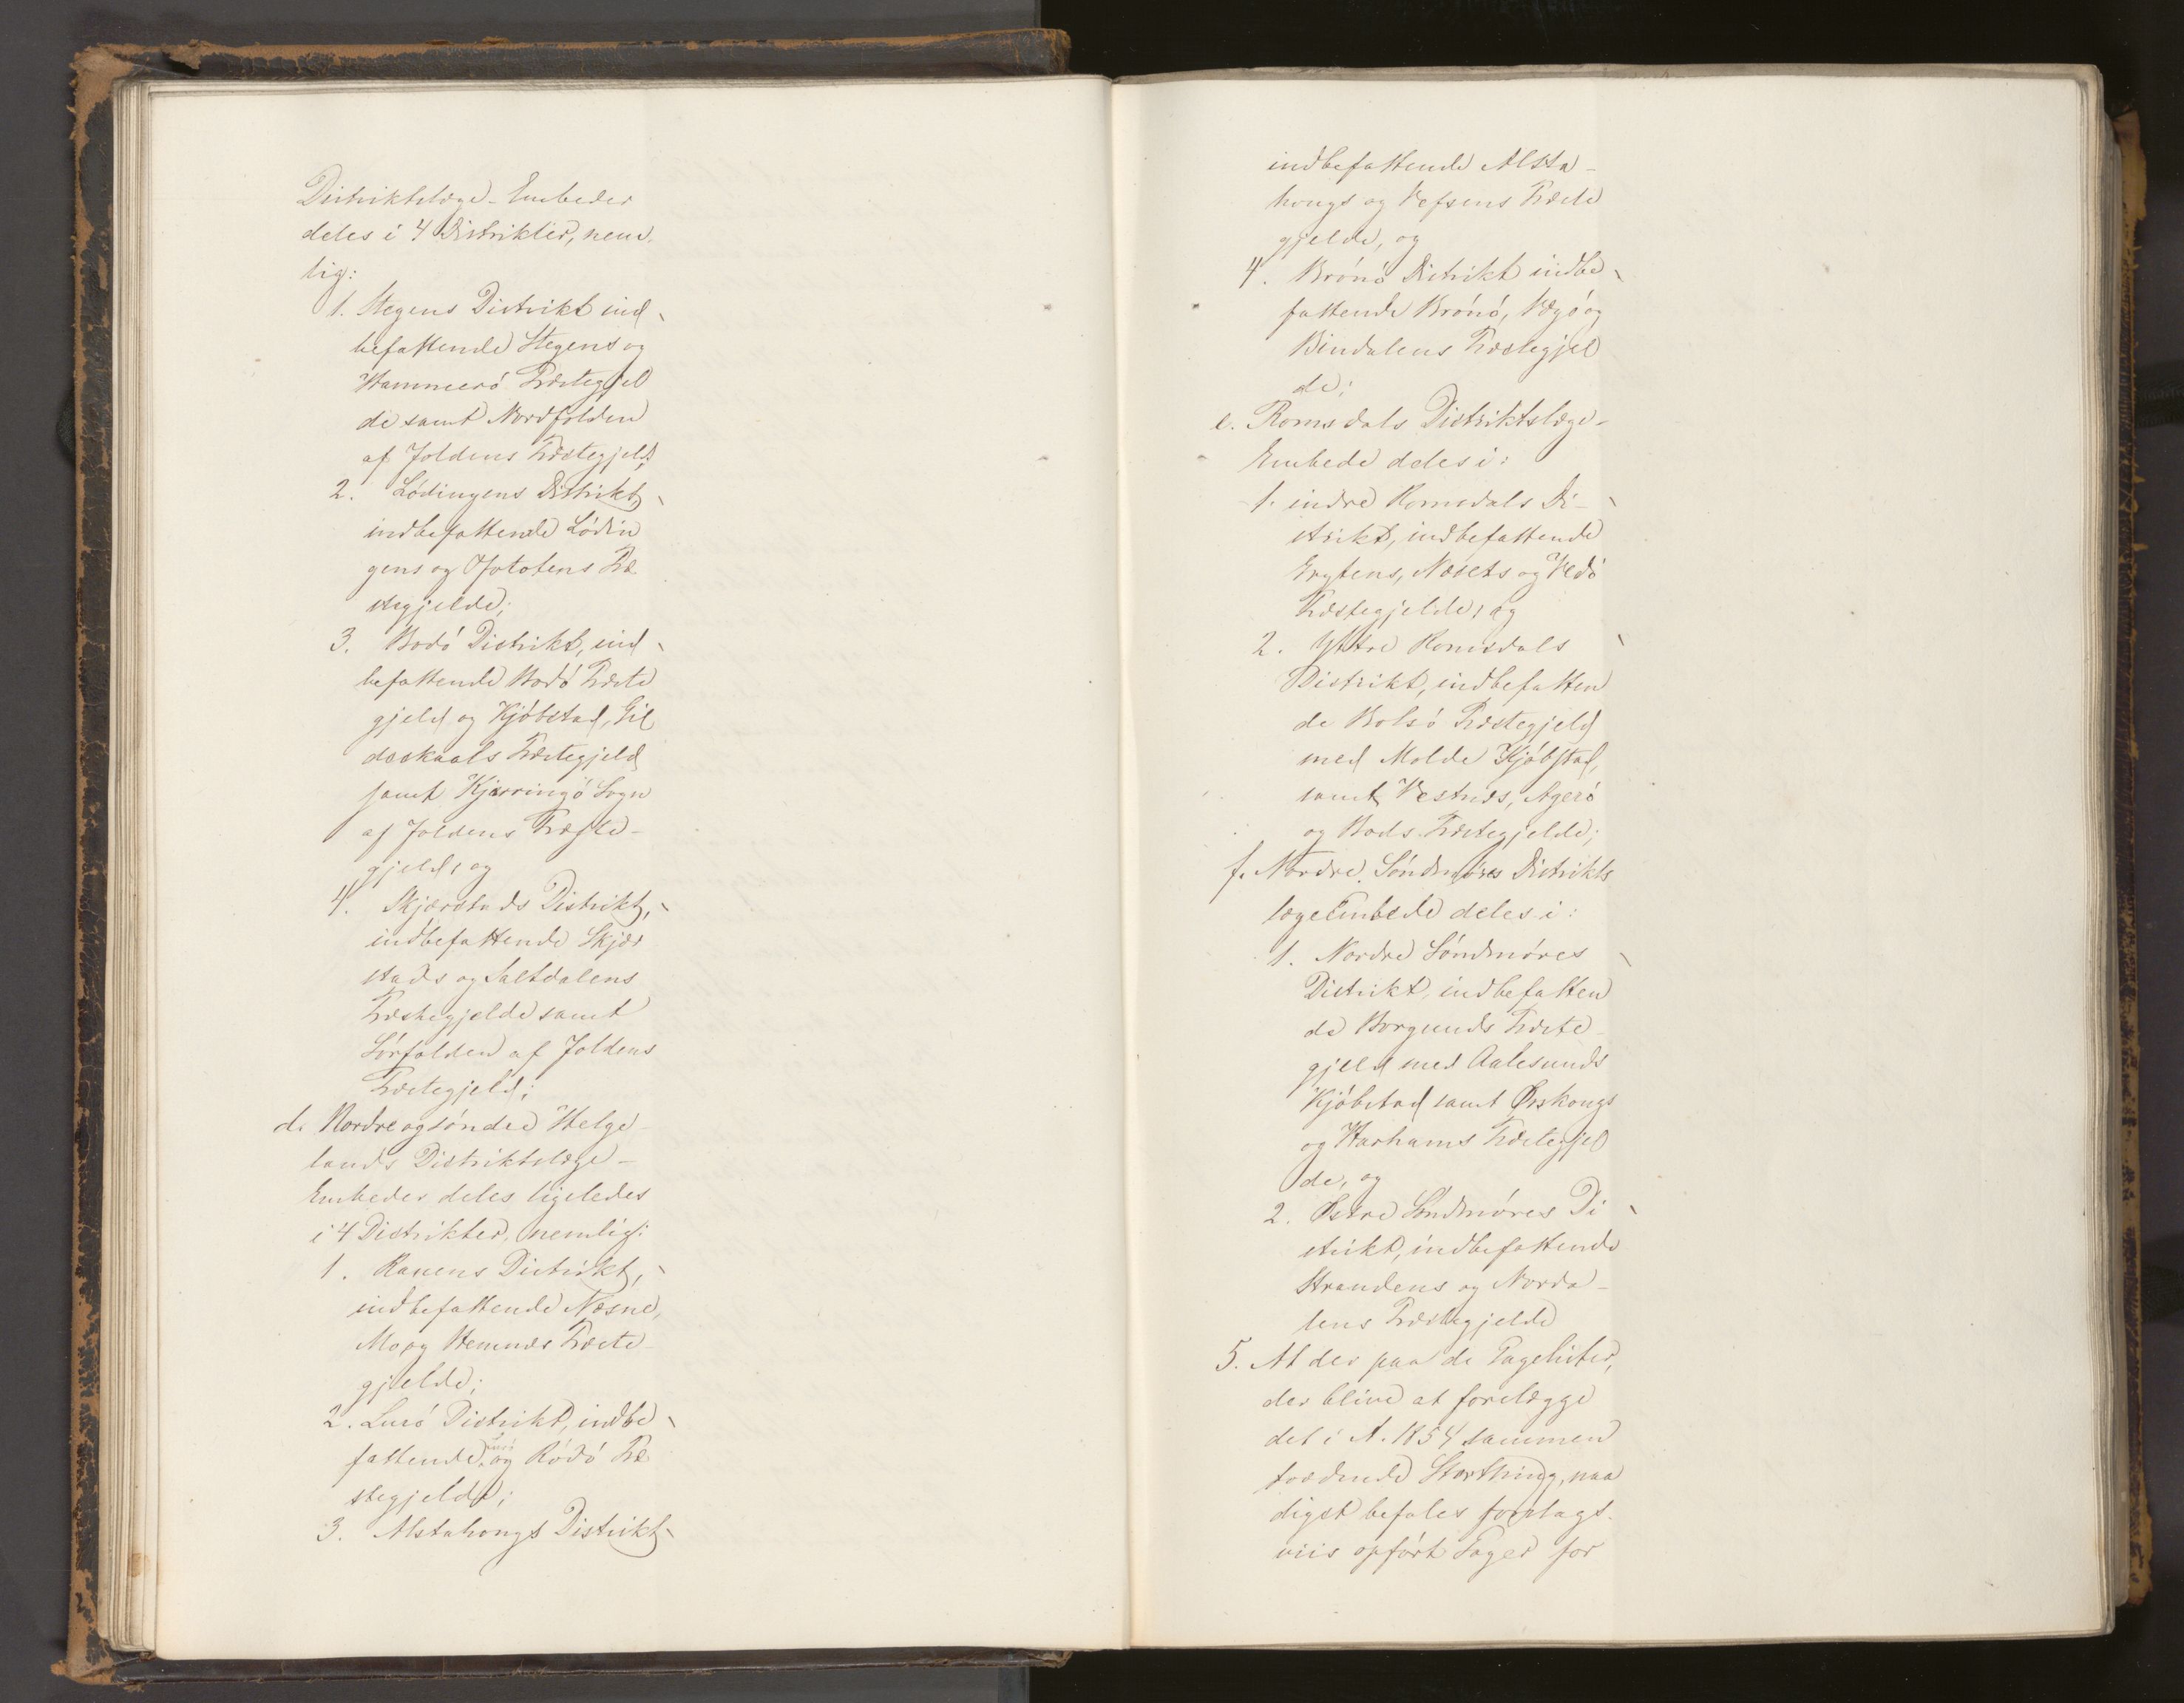 Distriktslæge-Embeder
deles i 4 Distrikter, nem-
lig:
1. Stegens Distrikt ind
befattende Stegens og
Hammerö Præstegjel
de samt Nordfolden
af Foldens Præstegjeld;
2. Lödingens Distrikt
indbefattende Lödin
gens og Ofototens Præ
stegjelde;
3. Bodö Distrikt, ind
befattende Bodö Præste
gjeld og Kjöbstad, Gil
deskaals Præstegjeld
samt Kjerringö Sogn
af Foldens Præste-
gjeld, og
4. Skjærstads Distrikt,
indbefattende Skjær
stads og Saltdalens
Præstegjelde samt
Sörfolden af Foldens
Præstegjeld;
d. Nordre og söndre Helge-
lands Distriktslæge-
Embeder deles ligeledes
i 4 Distrikter, nemlig:
1. Ranens Distrikt,
indbefattende Næsne,
Mo og Hemnæs Præste-
gjelde;
2. Lurö Distrikt, indbe
fattende Lurö og Rödö Præ
stegjelde;
3. Alstahongs Distrikt
indbefattende Alsta-
hougs og Vefsens Præste
gjelde, og
4. Brönö Distrikt indbe
fattende Brönö, Vegö og
Bindalens Præstegjel
de;
e. Romsdals Distriktslæge-
Embede deles i:
1. indre Romsdals Di-
strikt, indbefattende
Grytens, Næsets og Vedö
Præstegjelde, og
2. Yttre Romsdals
Distrikt, indbefatten
de Bolsö Præstegjeld
med Molde Kjöbstad,
samt Vestnæs, Agerö
og Bods Præstegjelde;
f. Nordre Söndmöres Distrikts
lægeEmbede deles i:
1. Nordre Söndmöres
Distrikt, indbefatten
de Borgunds Præste-
gjeld med Aalesunds
Kjöbstad samt Örskougs
og Harhams Præstegjel
de, og
2. Østre Söndmöres Di
strikt, indbefattende
Strandens og Norda-
lens Præstegjelde
5. At der paa de Gagelister,
der blive at forelægge
det i A. 1854 sammen
trædende Storthing, naa
digst befales forslags-
viis opført Gager for